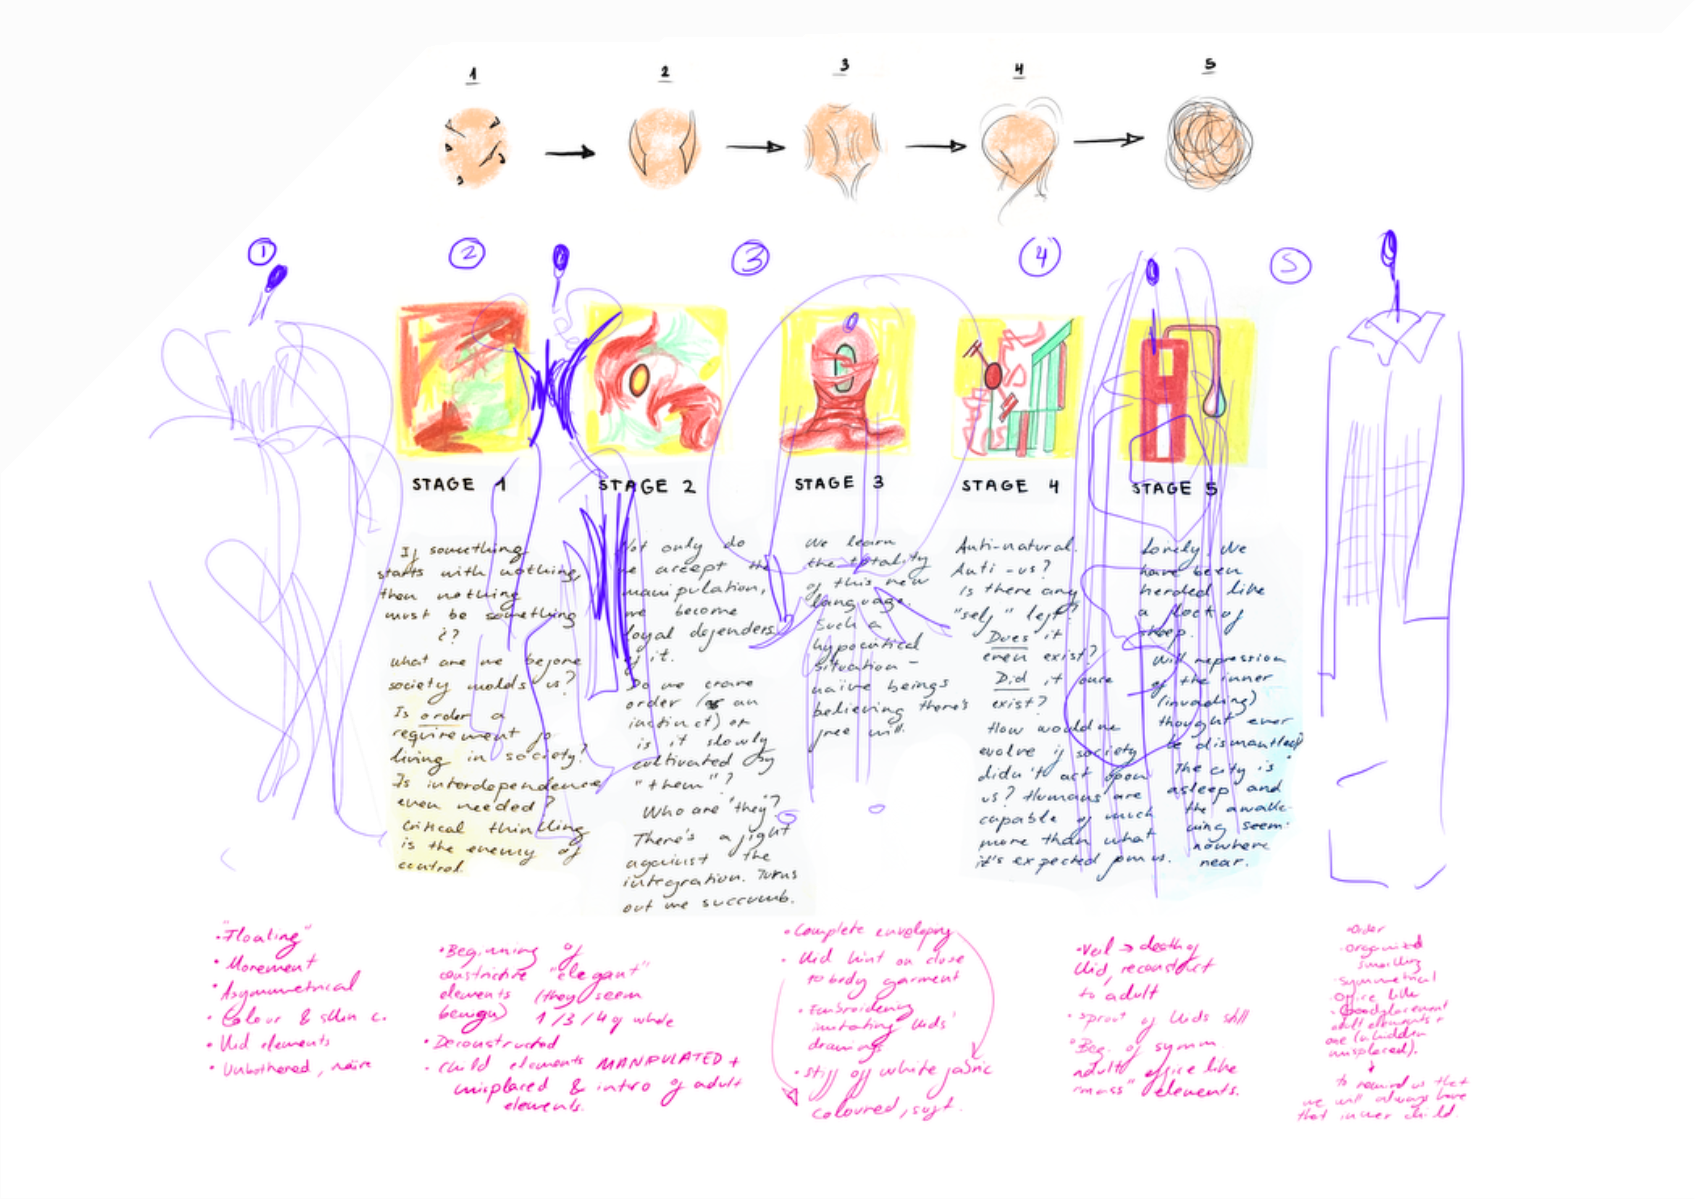 1
2
3
4
5
1
2
3
4
5
STAGE 1
If something
starts with nothing,
then nothing
must be something
¿?
what are we before
society molds us?
Is order a
requirement for
living in society?
Is interdependence
even needed?
Critical thinking
is the enemy of
control.
STAGE 2
Not only do
we accept the
manipulation,
we become
loyal defenders
of it.
Do we crave
order (as an
instinct) or
is it slowly
cultivated by
"them"?
Who are "they"?
There's a fight
against the
integration. Turns
out we succumb.
STAGE 3
We learn
the totality
of this new
language.
Such a
hypocritical
situation -
naïve beings
believing there's
free will.
STAGE 4
Anti-natural.
Anti-us?
Is there any
"self" left?
Does it
even exist?
Did it once
exist?
How would we
evolve if society
didn't act upon
us? Humans are
capable of much
more than what
it's expected from us.
STAGE 5
Lonely. We
have been
herded like
a flock of
sheep.
Will repression
of the inner
(invading)
thought ever
be dismantled?
The city is
asleep and
the awake-
ning seems
nowhere
near.
• "Floating"
• Movement
• Asymmetrical
• Colour & skin c.
• Kid elements
• Unbothered, naïve
• Beginning of
constrictive "elegant"
elements (they seem
benign) 1/3/4 of whole
• Deconstructed
• Child elements MANIPULATED +
misplaced & intro of adult
elements.
• Complete enveloping
• Kid hint on close
to body garment
• Embroidering
imitating kids'
drawings
• Stiff off white fabric
coloured, soft.
• Veil → death of
kid, reconstruct
to adult
• "sprout" of kids still
• Beg. of symm.
adult office like
"mass" elements.
• Order
• organized
• symmetrical
• office like
adult elements +
one (
misplaced).
to remind us that
we will always have
that inner child.